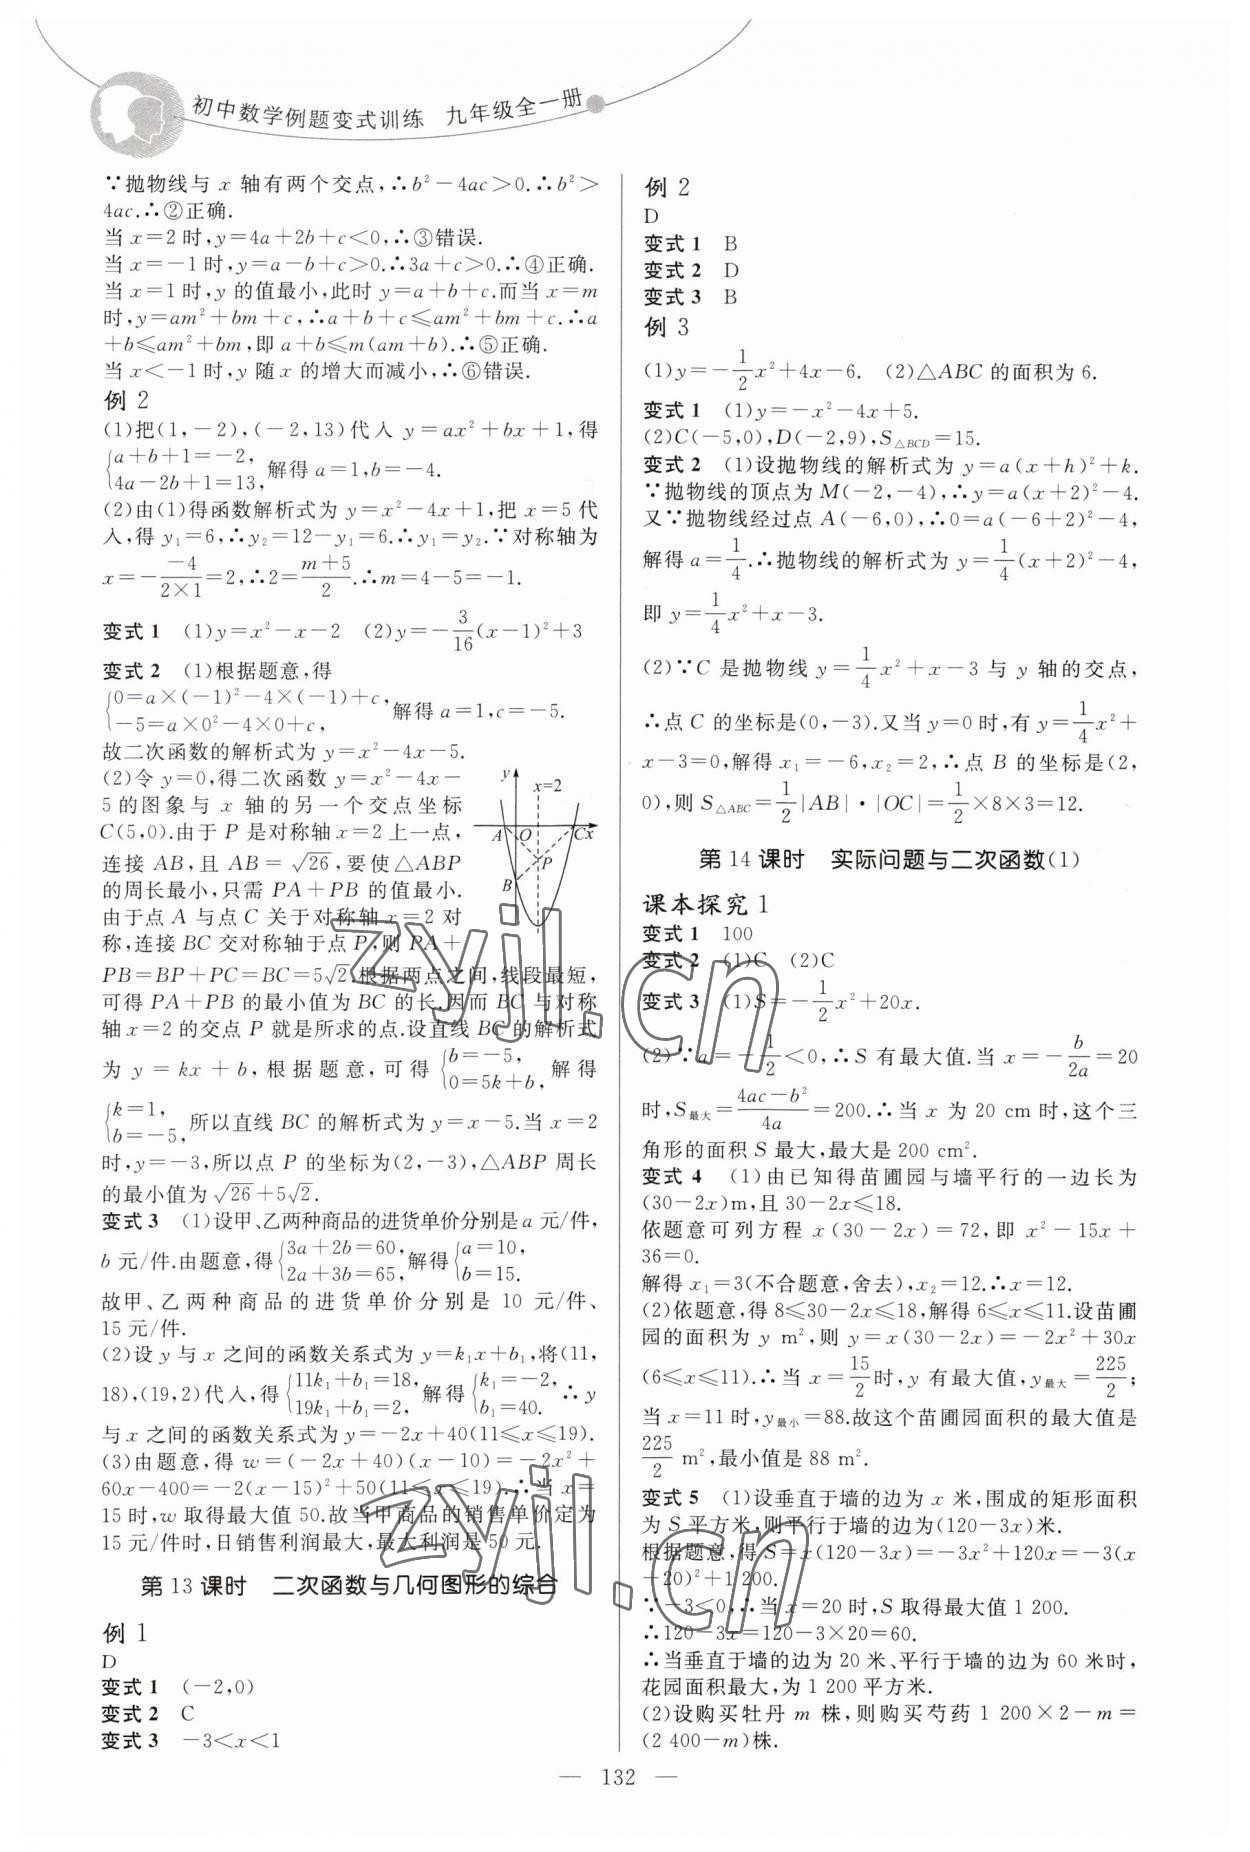 初中数学例题变式训练 九年级全一册
∵抛物线与 x 轴有两个交点,∴b²-4ac>0.∴b²>
4ac.∴②正确.
当 x=2 时,y=4a+2b+c<0,∴③错误.
当 x=-1 时,y=a-b+c>0.∴3a+c>0.∴④正确.
当 x=1 时,y 的值最小,此时 y=a+b+c.而当 x=m
时,y=am²+bm+c,∴a+b+c≤am²+bm+c.∴a
+b≤am²+bm,即 a+b≤m(am+b).∴⑤正确.
当 x<-1 时,y 随 x 的增大而减小,∴⑥错误.
例 2
(1)把(1,-2),(-2,13)代入 y=ax²+bx+1,得
{a+b+1=-2,
4a-2b+1=13, 解得 a=1,b=-4.
(2)由(1)得函数解析式为 y=x²-4x+1,把 x=5 代
入,得 y₁=6,∴y₂=12-y₁=6.∴y₁=y₂.∵对称轴为
x=-\frac{-4}{2×1}=2,∴2=\frac{m+5}{2}.∴m=4-5=-1.
变式 1 (1)y=x²-x-2 (2)y=-\frac{3}{16}(x-1)²+3
变式 2 (1)根据题意,得
{0=a×(-1)²-4×(-1)+c,
-5=a×0²-4×0+c, 解得 a=1,c=-5.
故二次函数的解析式为 y=x²-4x-5.
(2)令 y=0,得二次函数 y=x²-4x-
5 的图象与 x 轴的另一个交点坐标
C(5,0).由于 P 是对称轴 x=2 上一点,
连接 AB,且 AB=√26,要使△ABP
的周长最小,只需 PA+PB 的值最小.
由于点 A 与点 C 关于对称轴 x=2 对
称,连接 BC 交对称轴于点 P,则 PA+
PB=BP+PC=BC=5√2.根据两点之间,线段最短,
可得 PA+PB 的最小值为 BC 的长.因而 BC 与对称
轴 x=2 的交点 P 就是所求的点.设直线 BC 的解析式
为 y=kx+b,根据题意,可得 {b=-5,
0=5k+b, 解得
{k=1,
b=-5, 所以直线 BC 的解析式为 y=x-5.当 x=2
时,y=-3,所以点 P 的坐标为(2,-3),△ABP 周长
的最小值为√26+5√2.
y
x=2
A
O
C
x
P
B
变式 3 (1)设甲、乙两种商品的进货单价分别是 a 元/件,
b 元/件.由题意,得 {3a+2b=60,
2a+3b=65, 解得 {a=10,
b=15.
故甲、乙两种商品的进货单价分别是 10 元/件、
15 元/件.
(2)设 y 与 x 之间的函数关系式为 y=k₁x+b₁,将(11,
18),(19,2)代入,得 {11k₁+b₁=18,
19k₁+b₁=2, 解得 {k₁=-2,
b₁=40. ∴y
与 x 之间的函数关系式为 y=-2x+40(11≤x≤19).
(3)由题意,得 w=(-2x+40)(x-10)=-2x²+
60x-400=-2(x-15)²+50(11≤x≤19).∴当 x=
15 时,w 取得最大值 50.故当甲商品的销售单价定为
15 元/件时,日销售利润最大,最大利润是 50 元.
第 13 课时 二次函数与几何图形的综合
例 1
D
变式 1 (-2,0)
变式 2 C
变式 3 -3<x<1
例 2
D
变式 1 B
变式 2 D
变式 3 B
例 3
(1)y=-\frac{1}{2}x²+4x-6. (2)△ABC 的面积为 6.
变式 1 (1)y=-x²-4x+5.
(2)C(-5,0),D(-2,9),S△BCD=15.
变式 2 (1)设抛物线的解析式为 y=a(x+h)²+k.
∵抛物线的顶点为 M(-2,-4),∴y=a(x+2)²-4.
又∵抛物线经过点 A(-6,0),∴0=a(-6+2)²-4,
解得 a=\frac{1}{4}.∴抛物线的解析式为 y=\frac{1}{4}(x+2)²-4,
即 y=\frac{1}{4}x²+x-3.
(2)∵C 是抛物线 y=\frac{1}{4}x²+x-3 与 y 轴的交点,
∴点 C 的坐标是(0,-3).又当 y=0 时,有 y=\frac{1}{4}x²+
x-3=0,解得 x₁=-6,x₂=2,∴点 B 的坐标是(2,
0),则 S△ABC=\frac{1}{2}|AB|·|OC|=\frac{1}{2}×8×3=12.
第 14 课时 实际问题与二次函数(1)
课本探究 1
变式 1 100
变式 2 (1)C (2)C
变式 3 (1)S=-\frac{1}{2}x²+20x.
(2)∵a=-\frac{1}{2}<0,∴S 有最大值.当 x=-\frac{b}{2a}=20
时,S最大=\frac{4ac-b²}{4a}=200.∴当 x 为 20 cm 时,这个三
角形的面积 S 最大,最大是 200 cm².
变式 4 (1)由已知得苗圃园与墙平行的一边长为
(30-2x)m,且 30-2x≤18.
依题意可列方程 x(30-2x)=72,即 x²-15x+
36=0.
解得 x₁=3(不合题意,舍去),x₂=12.∴x=12.
(2)依题意,得 8≤30-2x≤18,解得 6≤x≤11.设苗圃
园的面积为 y m²,则 y=x(30-2x)=-2x²+30x
(6≤x≤11).∴当 x=\frac{15}{2}时,y 有最大值,y最大=\frac{225}{2};
当 x=11 时,y最小=88.故这个苗圃园面积的最大值是
\frac{225}{2} m²,最小值是 88 m².
变式 5 (1)设垂直于墙的边为 x 米,围成的矩形面积
为 S 平方米,则平行于墙的边为(120-3x)米.
根据题意,得 S=x(120-3x)=-3x²+120x=-3(x
-20)²+1 200.
∵-3<0,∴当 x=20 时,S 取得最大值 1 200.
∴120-3x=120-3×20=60.
∴当垂直于墙的边为 20 米、平行于墙的边为 60 米时,
花园面积最大,为 1 200 平方米.
(2)设购买牡丹 m 株,则购买芍药 1 200×2-m=
(2 400-m)株.
— 132 —
zyjl.cn
zyjl.cn